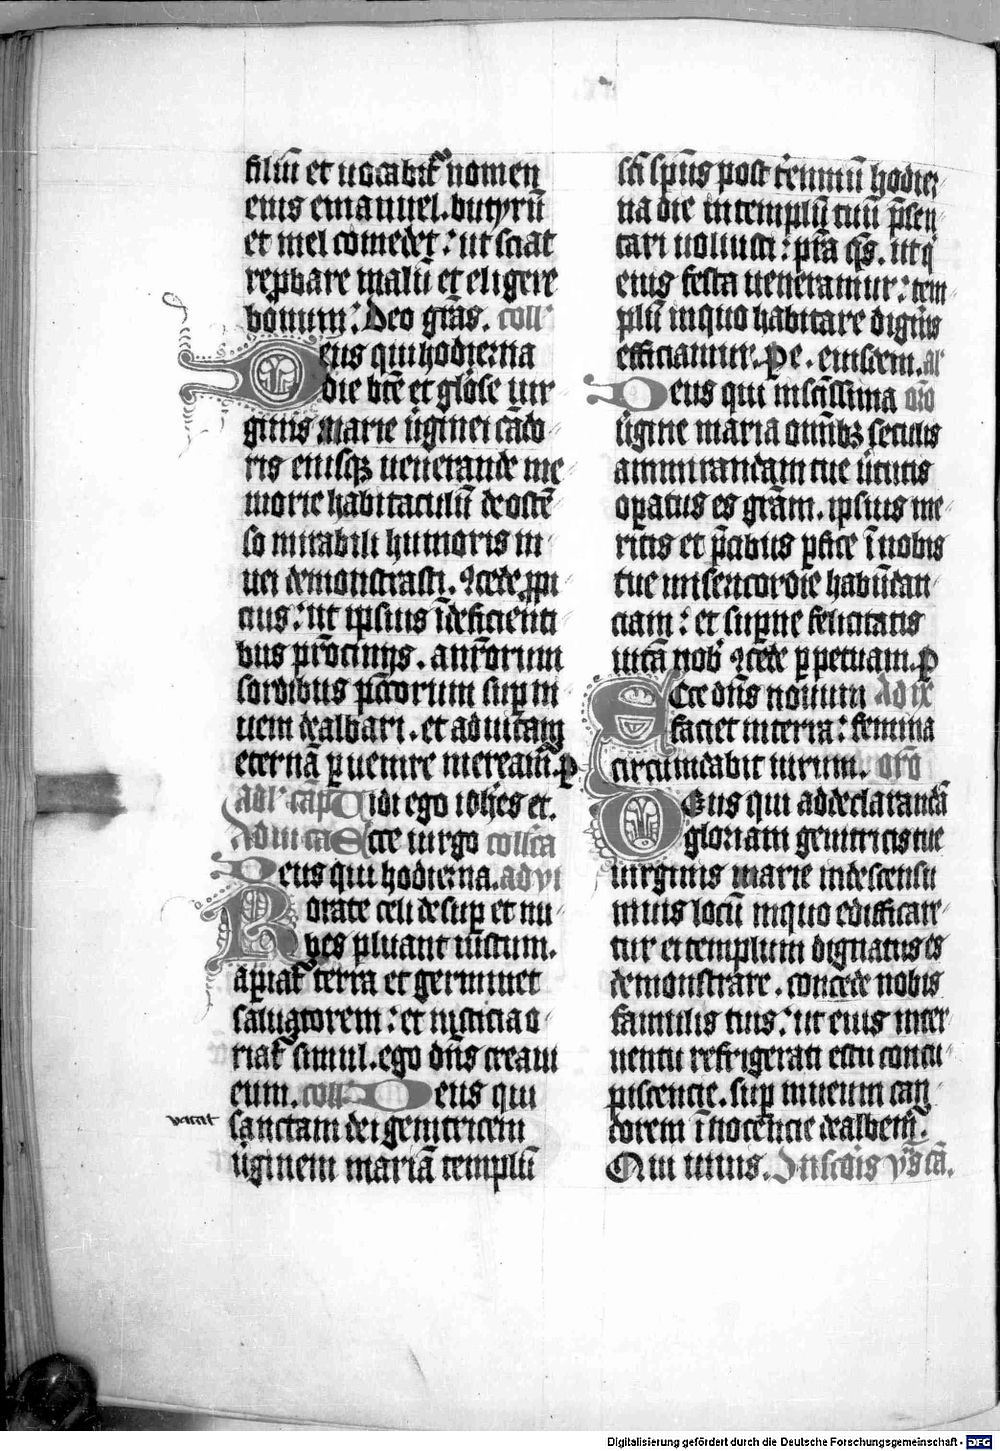 filiū et uocabit᷑ nomen
eius emanuel. butyrū
et mel comedet: ut sciat
rep̱bare malū et eligere
bonum: Deo grās. coll'
Deus qui hodierna
die btē et glōse uir
ginis Marie ūginei cādo
ris eiusqꝫ uenerande me
morie habitaculū de ostē
so mirabili humoris ni
uei demonstrasti. ꝯcede ꝓpi
cius: ut ipsius īdeficienti
bus
sordibus pctōrum sup̱ ni
uem dealbari. et ad uitam
eternā p̱uenire mereamͥ. p̱
Adl' cāpͭ Uidi ego iohēs et.
Ad ui ca Ecce uirgo collca
Deus qui hodierna. ad vi
Rorate celi desup̱ et nu
bes pluant iustum.
ap̱iat᷑ terra et germinet
saluatorem: et iusticia o
riat᷑ simul. ego dn̄s creaui
eum. coll' Deus qui
vacat sanctam dei genitricem
ūginem mariā templū
sct̄i spūs post hodier
na die in templū tuū p̄sen
tari uoluisti: pst̄a qs. ut qͥ
eius festa ueneramur: tem
plū in quo habitare dignͥis
efficiamur. Pe. eiusdem. al'
Deus qui in sct̄issima orō
ūgine maria omībꝫ seculis
ammirandam tue ūtutis
op̱atus es grām. ipsius me
ritis et p̄cibus p̱fice ī nobis
tue misericordie habūdan
ciam: et sup̱ne felicitatis
uitā nob' ꝯcede p̱petuam. p̱
Ecce dn̄s nouum Ad ix
faciet in terra: femina
circumdabit uirum. orō
Deus qui ad declarandā
gloriam genitricis tue
uirginis marie in descensu
niuis locū in quo edificare
tur ei templum dignatus es
demonstrare. concede nobis
famulis tuis: ut eius inter
uentu refrigerati estu concu
piscencie. sup̱ niueum can
dorem īnocencie dealbemͥ.
Qui uiuis. In scdīs
Digitalisierung gefördert durch die Deutsche Forschungsgemeinschaft - DFG